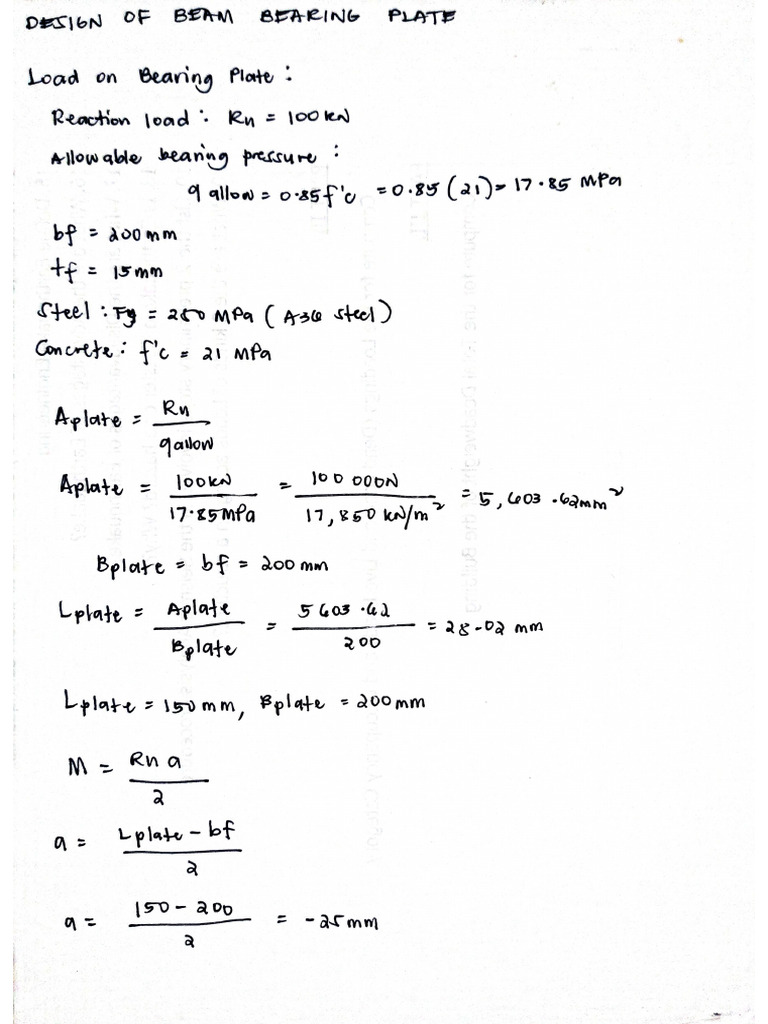 DESIGN OF BEAM BEARING PLATE
Load on Bearing Plate :
Reaction load : Rn = 100 kN
Allowable bearing pressure :
q allow = 0.85 f'c = 0.85 (21) = 17.85 MPa
bf = 200 mm
tf = 15 mm
Steel : Fy = 250 MPa ( A36 steel )
Concrete : f'c = 21 MPa
Aplate = Rn / qallow
Aplate = 100 kN / 17.85 MPa = 100 000N / 17,850 kN/m² = 5,603.62 mm²
Bplate = bf = 200 mm
Lplate = Aplate / Bplate = 5603.62 / 200 = 28.02 mm
Lplate = 150 mm, Bplate = 200 mm
M = Rn a / 2
a = Lplate - bf / 2
a = 150 - 200 / 2 = -25 mm